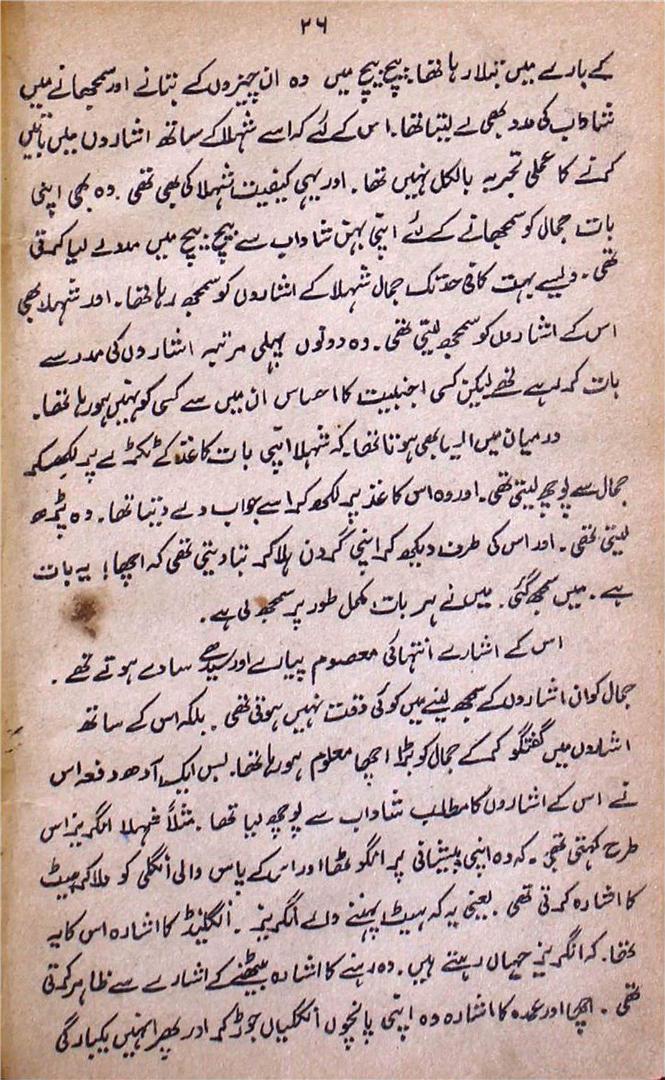 ۲۶
کے بارے میں بتلا رہا تھا۔ بیچ بیچ میں وہ ان چیزوں کے بتانے اور سمجھانے میں
شاداب کی مدد بھی لے لیتا تھا۔ اس کے لئے کہ اسے شہلا کے ساتھ اشاروں میں باتیں
کرنے کا عملی تجربہ بالکل نہیں تھا۔ اور یہی کیفیت شہلا کی بھی تھی۔ وہ بھی اپنی
بات جمال کو سمجھانے کے لئے اپنی بہن شاداب سے بیچ بیچ میں مدد لے لیا کرتی
تھی۔ ویسے بہت کافی حد تک جمال شہلا کے اشاروں کو سمجھ رہا تھا۔ اور شہلا بھی
اس کے اشاروں کو سمجھ لیتی تھی۔ وہ دونوں پہلی مرتبہ اشاروں کی مدد سے
بات کر رہے تھے لیکن کسی اجنبیت کا احساس ان میں سے کسی کو نہیں ہو رہا تھا۔
درمیان میں ایسا بھی ہوتا تھا۔ کہ شہلا اپنی بات کاغذ کے ٹکڑے پر لکھ کر
جمال سے پوچھ لیتی تھی۔ اور وہ اس کاغذ پر لکھ کر اسے جواب دے دیتا تھا۔ وہ پڑھ
لیتی تھی۔ اور اس کی طرف دیکھ کر اپنی گردن ہلا کر بتا دیتی تھی کہ اچھا! یہ بات
ہے۔ میں سمجھ گئی۔ میں نے ہر بات مکمل طور پر سمجھ لی ہے۔
اس کے اشارے انتہائی معصوم پیارے اور سیدھے سادے ہوتے تھے۔
جمال کو ان اشاروں کے سمجھ لینے میں کوئی دقت نہیں ہوتی تھی۔ بلکہ اس کے ساتھ
اشاروں میں گفتگو کر کے جمال کو بڑا اچھا معلوم ہو رہا تھا۔ بس ایک آدھ دفعہ اس
نے اس کے اشاروں کا مطلب شاداب سے پوچھ لیا تھا۔ مثلاً شہلا انگریز اس
طرح کہتی تھی۔ کہ وہ اپنی پیشانی پر انگوٹھا اور اس کے پاس والی انگلی کو ملا کر ہیٹ
کا اشارہ کرتی تھی۔ یعنی یہ کہ ہیٹ پہننے والے انگریز۔ انگلینڈ کا اشارہ اس کا یہ
تھا۔ کہ انگریز جہاں رہتے ہیں۔ وہ رہنے کا اشارہ بیٹھنے کے اشارے سے ظاہر کرتی
تھی۔ اچھا اور عمدہ کا اشارہ وہ اپنی پانچوں انگلیاں جوڑ کر اور پھر انہیں یکبارگی